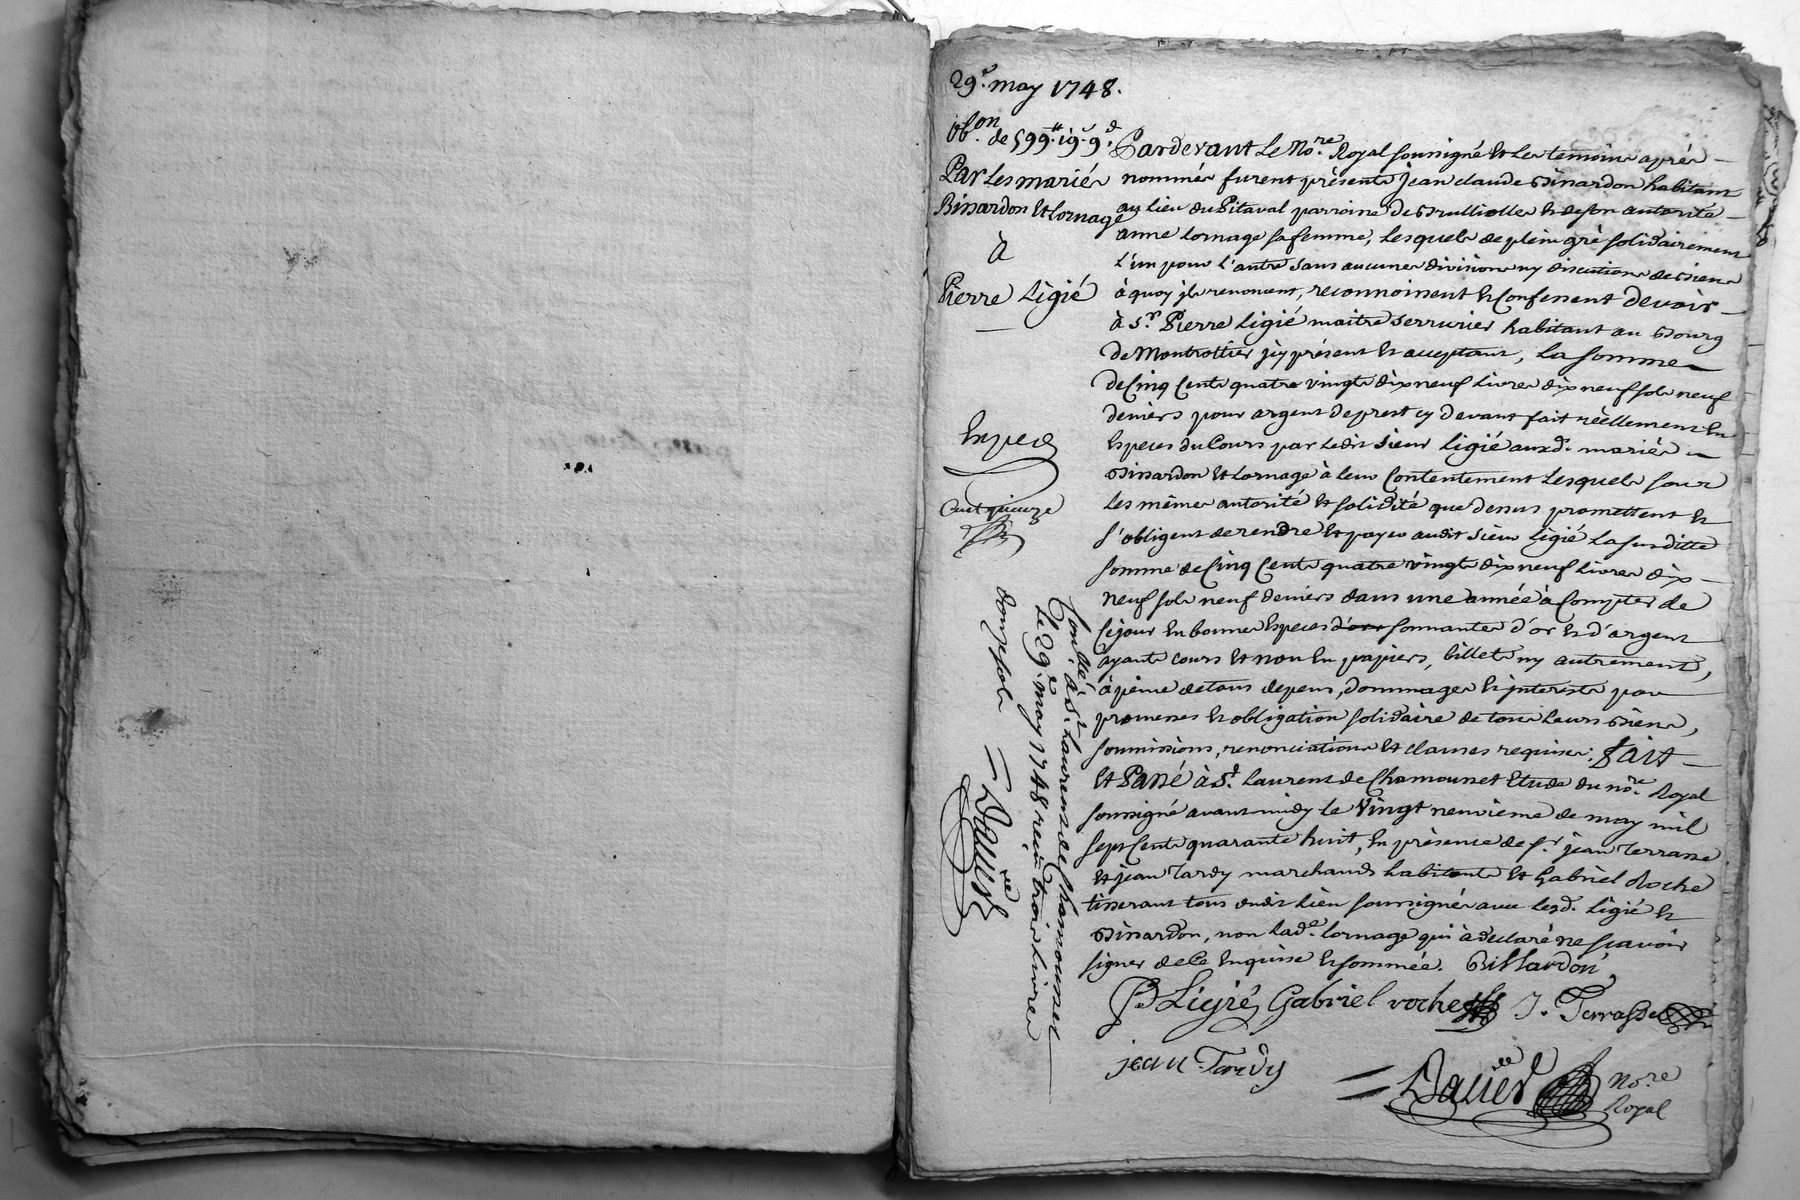 29e. may 1748.
obon. de 599lt. 19s. 9d.
Par Les mariés
Bissardon Et Lornage
à
Pierre Ligié
Pardevant Le No.re Royal soussigné Et Les temoins après
nommés furent présents jean claude Bissardon habitant
au lieu du Pitaval parroisse de Brulliolles Et de son autorité
anne Lornage sa femme, Lesquels de plein gré solidairement
L'un pour L'autre sans aucunes divisions ny discutions de biens
à quoy ils renoncent, reconnoissent Et Confessent devoir
à Sr. Pierre Ligié maitre serrurier habitant au Bourg
de Montrottier jcy présent Et acceptant, La somme
de Cinq Cents quatre vingts dix neuf Livres dix neuf sols neuf
deniers pour argent de prest cy devant fait réellement En
Especes du Cours par Ledit sieur Ligié auxd. mariés
Bissardon Et Lornage à leur Contentement Lesquels sous
Les mêmes autorité Et solidité que dessus promettent Et
s'obligent de rendre Et payer audit sieur Ligié La susditte
somme de Cinq Cents quatre vingts dix neuf Livres dix
neuf sols neuf deniers dans une année à Compter de
Ce jour En bonnes Especes sonnantes d'or Et d'argent
ayants cours Et non En papiers, billets ny autrement,
à peine de tous depens, dommages Et jnterests par
promesses Et obligation solidaire de tous Leurs Biens,
soumissions, renonciations Et clauses requises: fait
Et Passé à St. Laurent de Chamousset Etude du no.re Royal
soussigné avant midy le Vingt neuvieme de may mil
sept Cents quarante huit, En présence de sr. jean Terrasse
Et jean Tardy marchands habitants Et Gabriel Roche
tisserant tous dudit Lieu soussignés avec Lesd. Ligié Et
Bissardon, non Lade. Lornage qui à declaré ne scavoir
signer de Ce Enquise Et sommée. Bissardon
P Ligié Gabriel roche J. Terrasse
jean Tardy
Dallier No.re
Royal
Exped
Con.lé à St. Laurent de Chamousset
Le 29e. may 1748 reçu trois Livres
douze sols